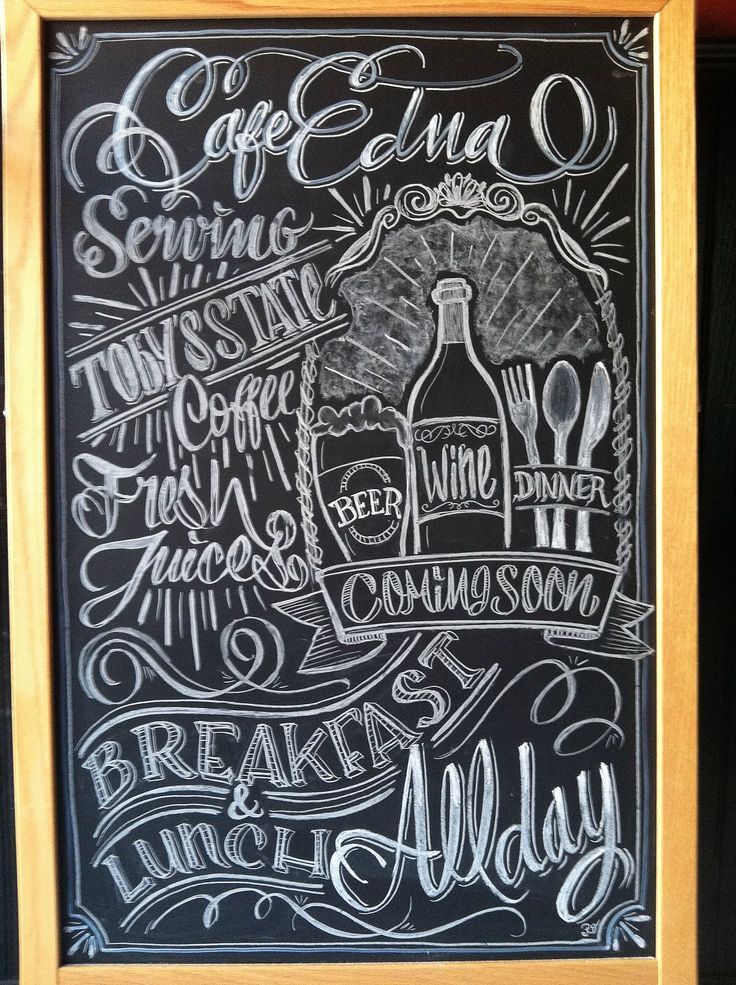 Cafe Edna
Serving
TobysState
Coffee
Fresh
Juices
BEER
Wine
DINNER
Coming Soon
BREAKFAST
&
LUNCH
All day